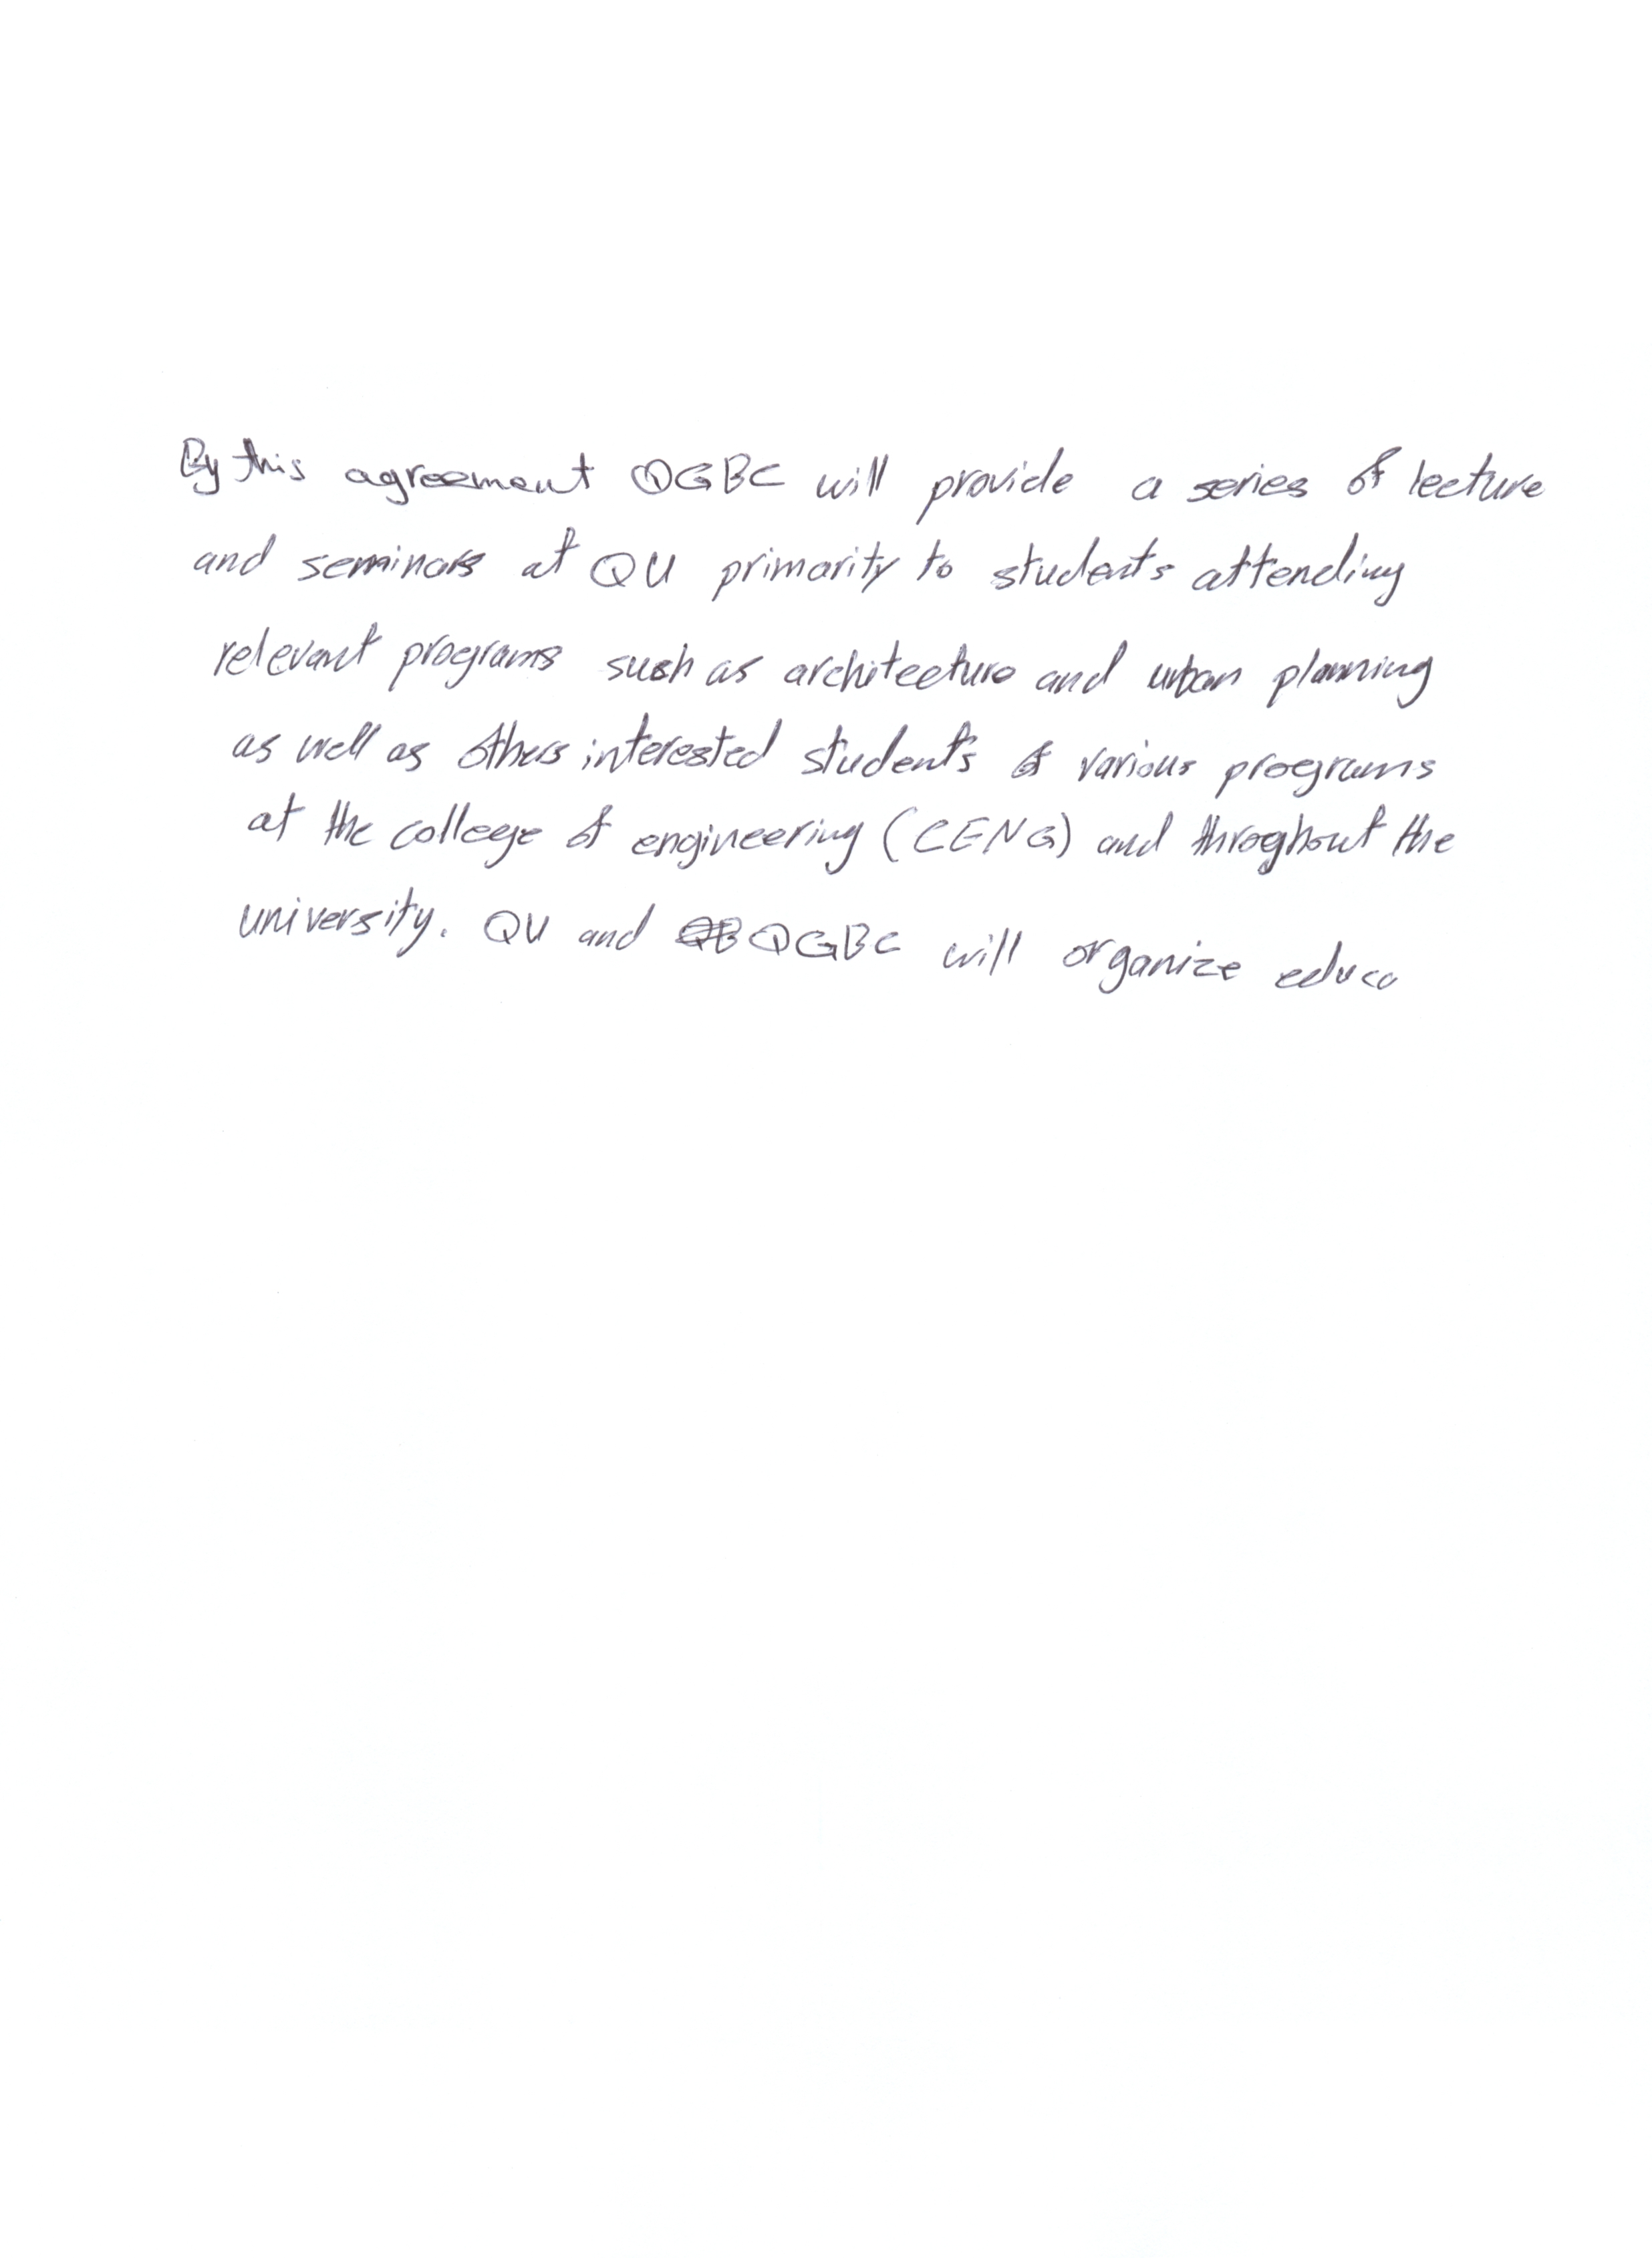 By this agreement QGBC will provide a series of lecture
and seminars at QU primarity to students attending
relevant programs such as architecture and urban planning
as well as others interested students of various programs
at the college of engineering (CENG) and throghout the
university. QU and QB QGBC will organize educa